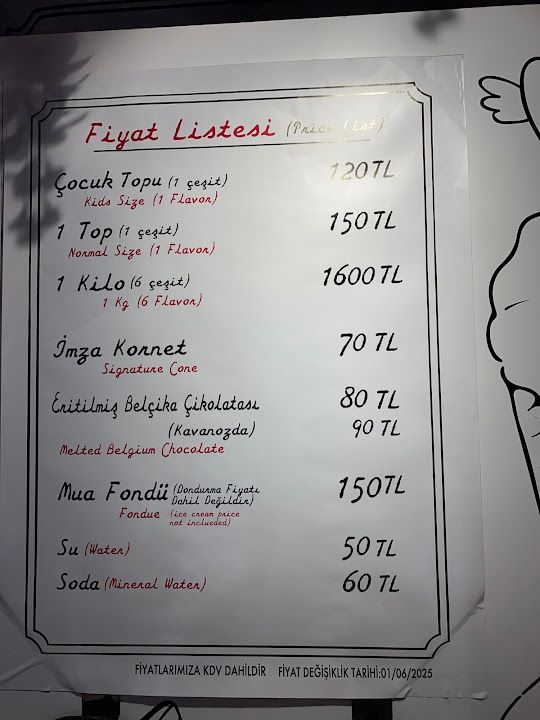 Fiyat Listesi (Price List)
Çocuk Topu (1 çeşit) 120 TL
Kids Size (1 Flavor)
1 Top (1 çeşit) 150 TL
Normal Size (1 Flavor)
1 Kilo (6 çeşit) 1600 TL
1 Kg (6 Flavor)
İmza Kornet 70 TL
Signature Cone
Eritilmiş Belçika Çikolatası 80 TL
(Kavanozda) 90 TL
Melted Belgium Chocolate
Mua Fondü (Dondurma Fiyatı 150 TL
Dahil Değildir)
Fondue (ice cream price
not inclueded)
Su (Water) 50 TL
Soda (Mineral Water) 60 TL
FİYATLARIMIZA KDV DAHİLDİR FİYAT DEĞİŞİKLİK TARİHİ:01/06/2025